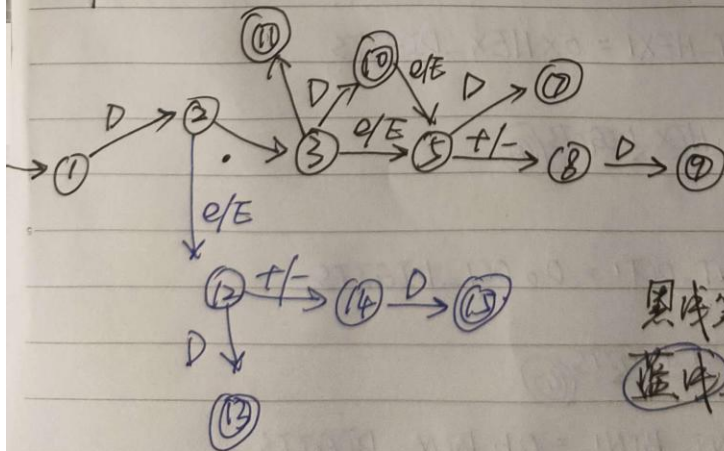 ⑪ ⑩ e/E
D ② D D ⑦
① . ③ e/E ⑤ +/- ⑧ D ⑨
e/E
⑫ +/- ⑭ D ⑮
D
⑬
黑线
蓝线